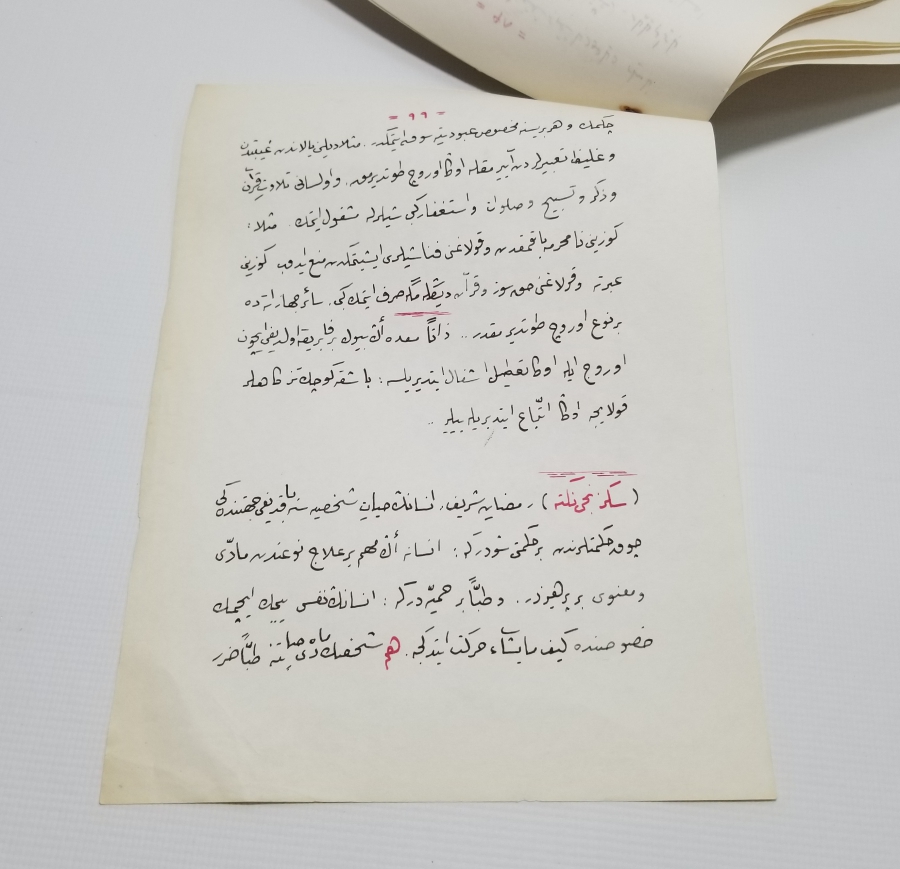 - ١١ -
چكمك و هر برينه مخصوص عبوديته سوق ايتمكدر. مثلا ديلنى يالاندن غيبتدن
و غليظ تعبيرلردن آيرمقله اوڭا اوروج طوتديرمق. و او لسانى تلاوت قرآن
و ذكر و تسبيح و صلوات و استغفار كبى شيلرله مشغول ايتمك. مثلا:
كوزينى نامحرمه باقمقدن و قولاغنى فنا شيلرى ايشيتمكدن منع ايدوب كوزينى
عبرته و قولاغنى حق سوز و قرآن ديڭله مگه صرف ايتمك كبى. سائر جهازاته ده
بر نوع اوروج طوتديرمقدر.. ذاتًا معده أڭ بيوك بر فابريقه اولديغى ايچون
اوروج ايله اوڭا تعطيل اشغال ايتديريلسه: باشقه كوچك تزكاهلر
قولايجه اوڭا اتّباع ايتديريله بيلير..
(سكزنجى نكته) رمضان شريف، انسانڭ حيات شخصيه سنه باقديغى جهتنده كى
چوق حكمتلرندن بر حكمتى شودركه: انسانه أڭ مهم بر علاج نوعندن مادّى
و معنوى بر پرهيزدر. و طبًّا بر حميّه دركه: انسانڭ نفسى ييمك ايچمك
خصوصنده كيف مايشاء حركت ايتدكجه. هم شخصڭ مادّى حياتنه طبًّا ضرر